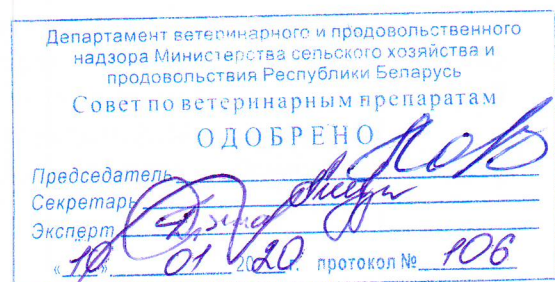 Департамент ветеринарного и продовольственного
надзора Министерства сельского хозяйства и
продовольствия Республики Беларусь
Совет по ветеринарным препаратам
ОДОБРЕНО
Председатель
Секретарь
Эксперт
«10» 01 2020 г. протокол № 106